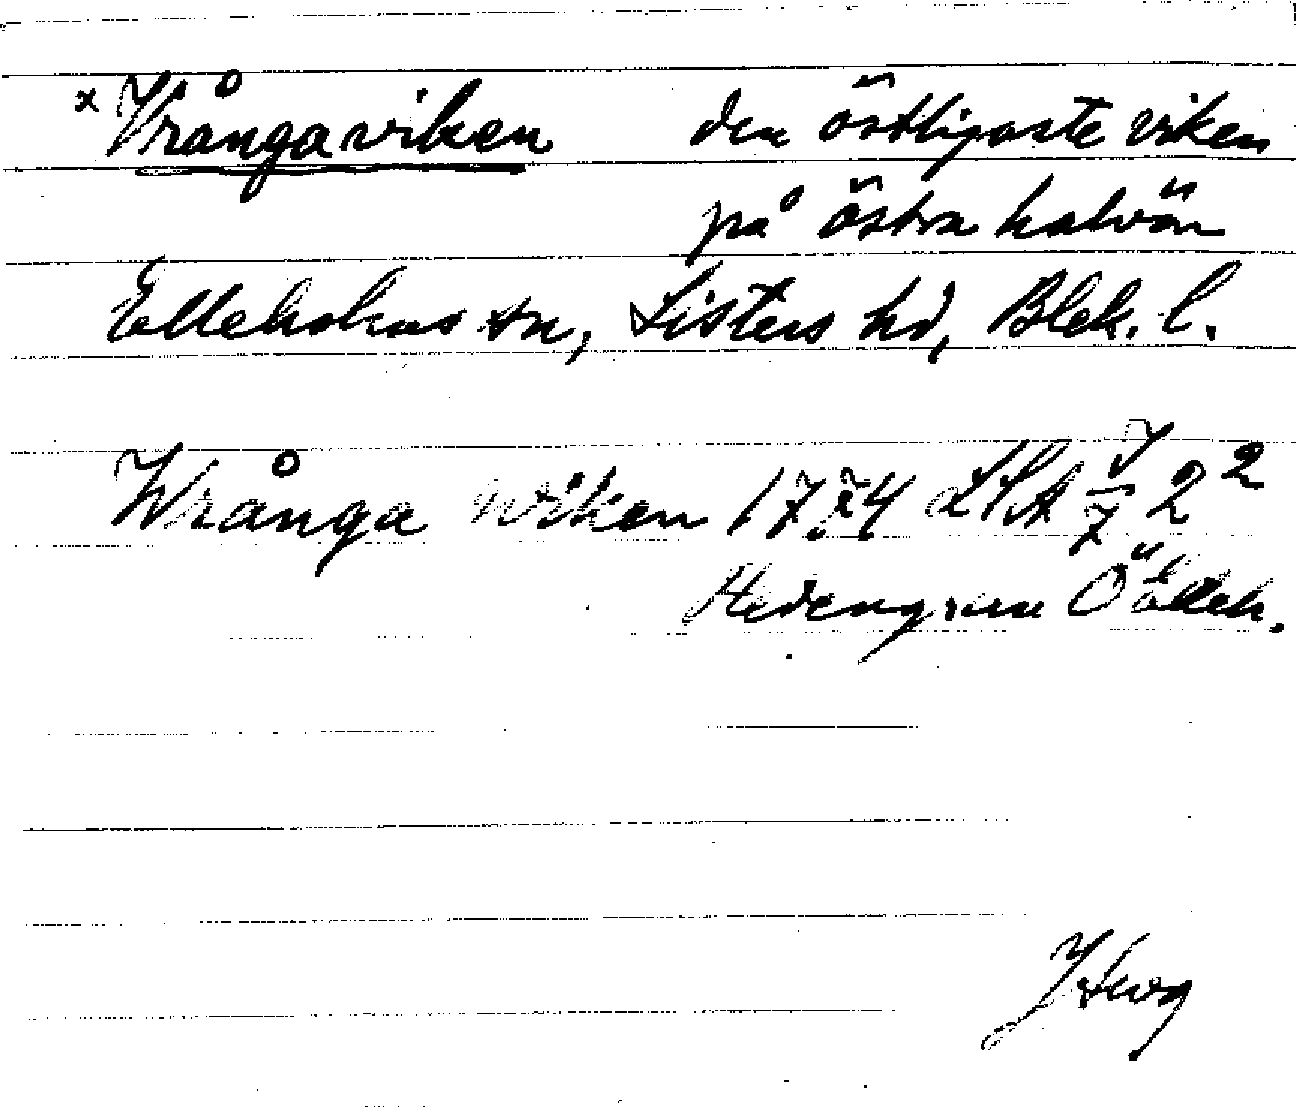 x Vrångaviken den östligaste viken
på östra halvön
Elleholms sn, Listers hd, Blek. l.
Wrånga wiken 1774 LSA 2²
Ö Elleh.